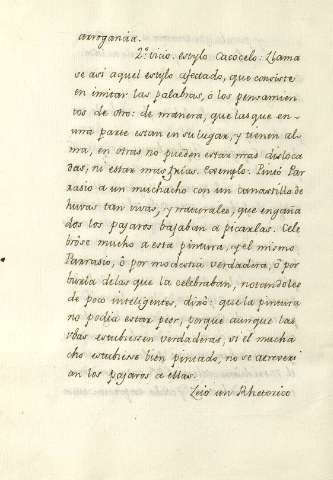 arrogancia.
2º vicio. estylo Cacocelo: Llama
se asi aquel estylo afectado, que consiste
en imitar las palabras, ó los pensamien
tos de otro: de manera, que las que en
una parte estan en su lugar, y tienen al
ma, en otras no pueden estar mas disloca
das, ni estar mas frias. Exemplo. Pintó Par
rasio a un muchacho con un canastillo de
huvas tan vivas, y naturales, que engaña
dos los pajaros bajaban a picarlas. Cele
brose mucho a esta pintura, y el mismo
Parrasio, ó por modestia verdadera, ó por
burla de las que la celebraban, notandoles
de poco inteligentes, dixo: que la pintura
no podia estar peor, porque aunque las
vbas estubiesen verdaderas, si el mucha
cho estubiese bien pintado, no se atreveri
an los pajaros a ellas.
Leio un Rhetorico